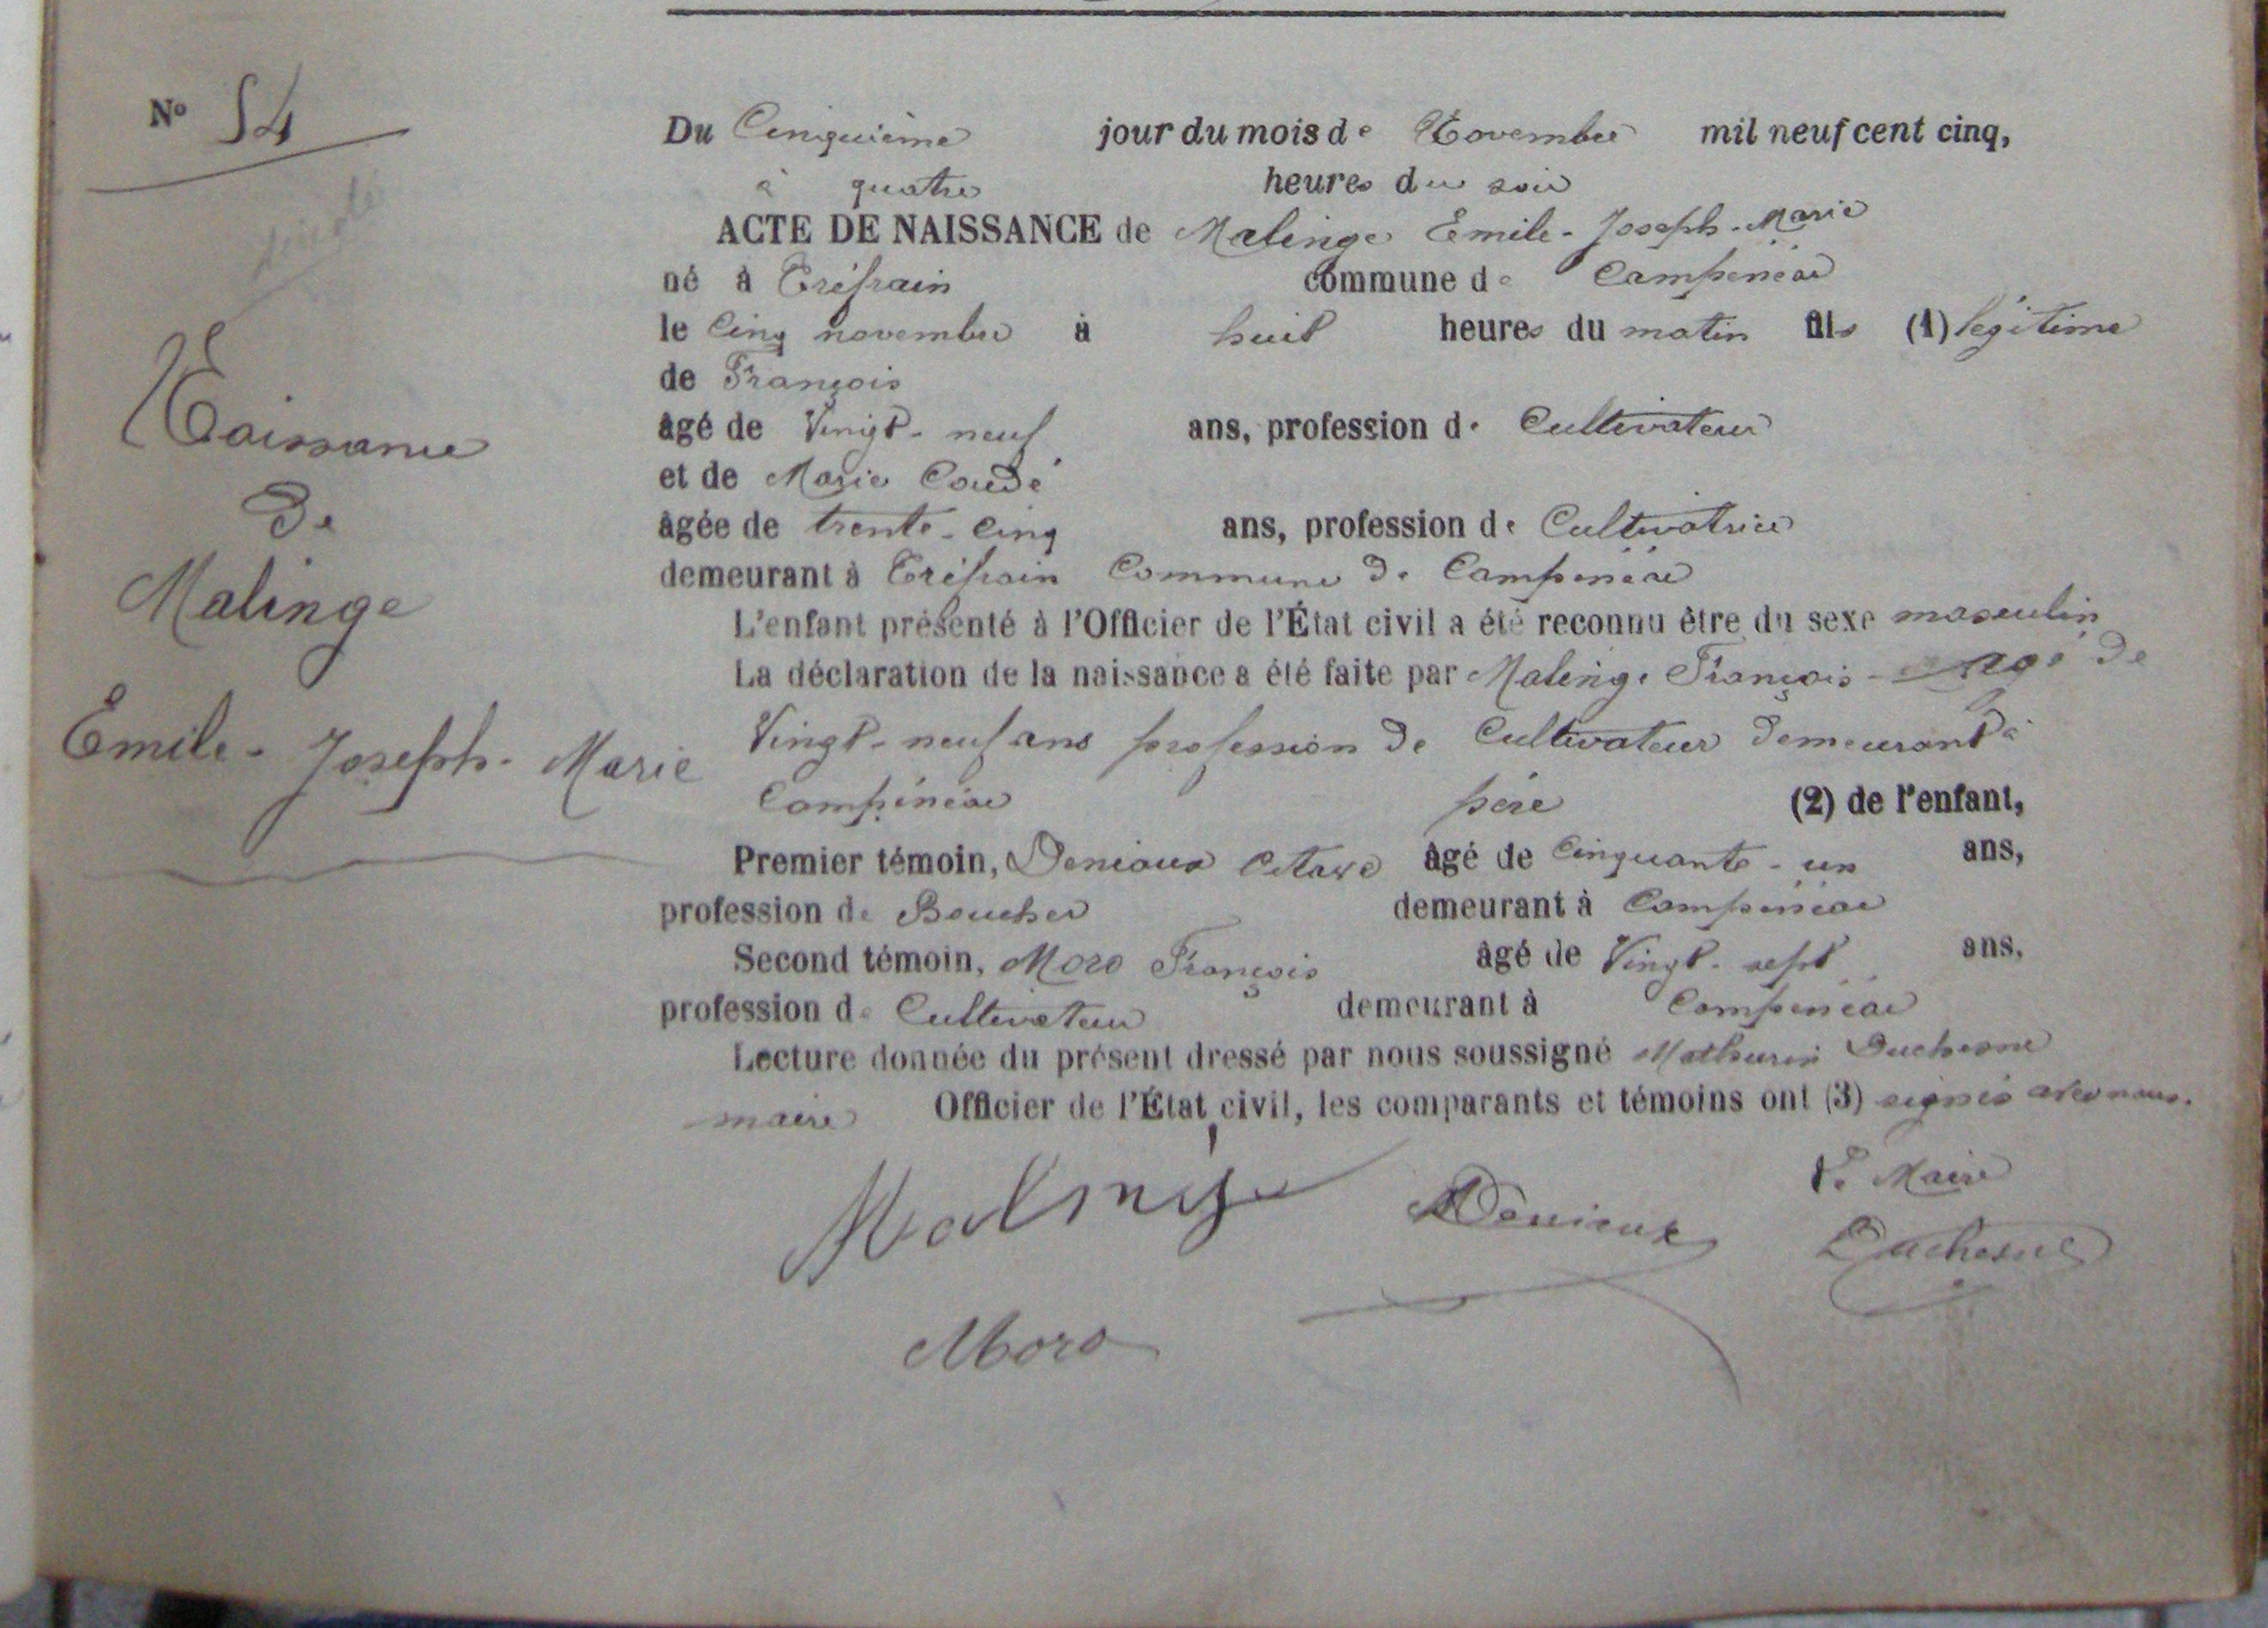 N° 54
Naissance
de
Malinge
Emile - Joseph - Marie
Du Cinquième jour du mois de Novembre mil neuf cent cinq,
à quatre heures du soir
ACTE DE NAISSANCE de Malinge Emile - Joseph - Marie
né à Trépain commune de Campénéac
le cinq novembre à huit heures du matin fils (1) légitime
de François
âgé de Vingt - neuf ans, profession de Cultivateur
et de Marie Coudé
âgée de trente - cinq ans, profession de Cultivatrice
demeurant à Trépain Commune de Campénéac
L'enfant présenté à l'Officier de l'État civil a été reconnu être du sexe masculin
La déclaration de la naissance a été faite par Malinge François - âgé de
Vingt - neuf ans profession de Cultivateur demeurant à
Campénéac père (2) de l'enfant,
Premier témoin, Denioux Octave âgé de Cinquante - un ans,
profession de Boucher demeurant à Campénéac
Second témoin, Moro François âgé de Vingt - sept ans,
profession de Cultivateur demeurant à Campénéac
Lecture donnée du présent dressé par nous soussigné Mathurin Duchesne
maire Officier de l'État civil, les comparants et témoins ont (3) signés avec nous.
Malinge Denioux Le Maire
Duchesne
Moro